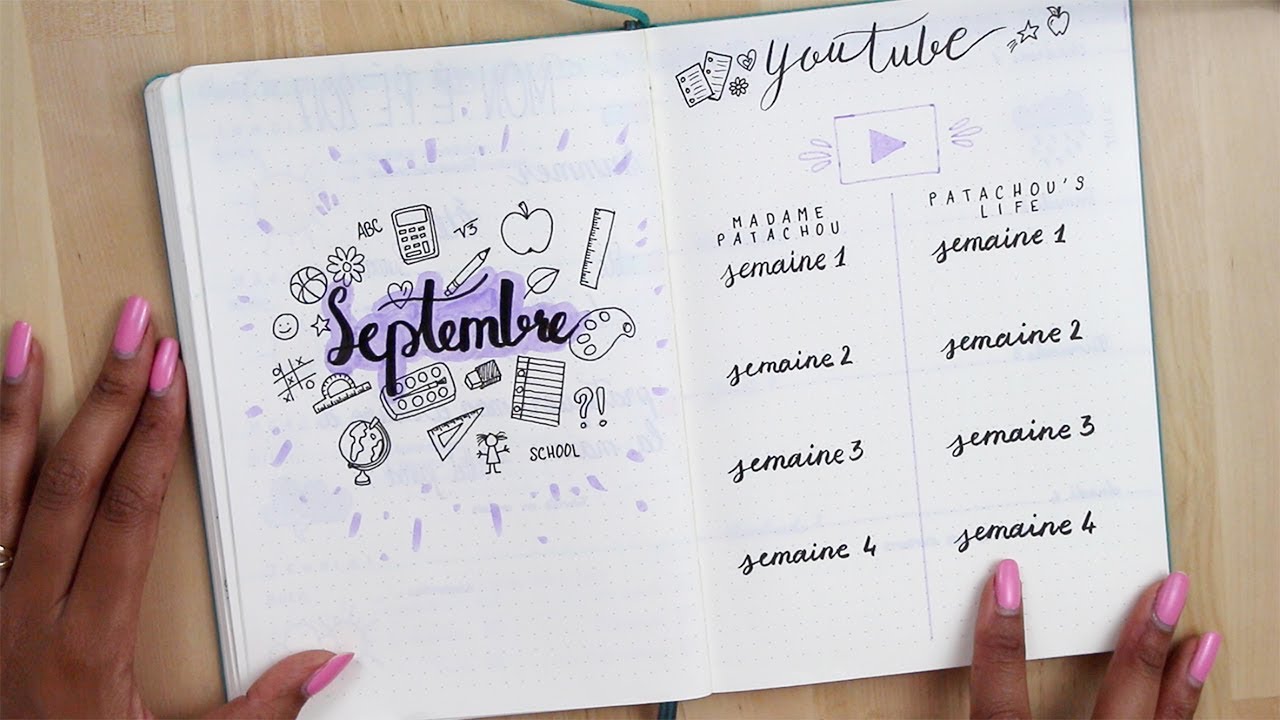 ABC
√3
Septembre
?!
SCHOOL
Youtube
MADAME
PATACHOU
semaine 1
semaine 2
semaine 3
semaine 4
PATACHOU'S
LIFE
semaine 1
semaine 2
semaine 3
semaine 4